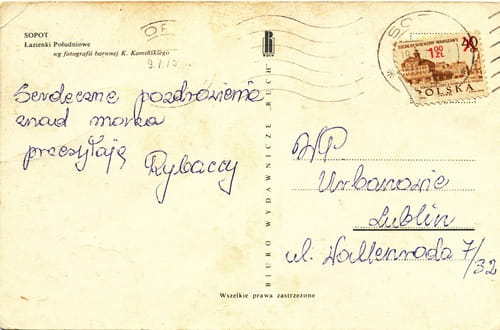 SOPOT
Łazienki Południowe
wg fotografii barwnej K. Kamińskiego
Serdeczne pozdrowienia
znad morka
przesyłają
Rybaccy
BIURO WYDAWNICZE RUCH
SIEDEM WIEKÓW WARSZAWY
40
1,00
ZŁ
POLSKA
WP
Urbanowie
Lublin
ul. Wallenroda 7/32
Wszelkie prawa zastrzeżone